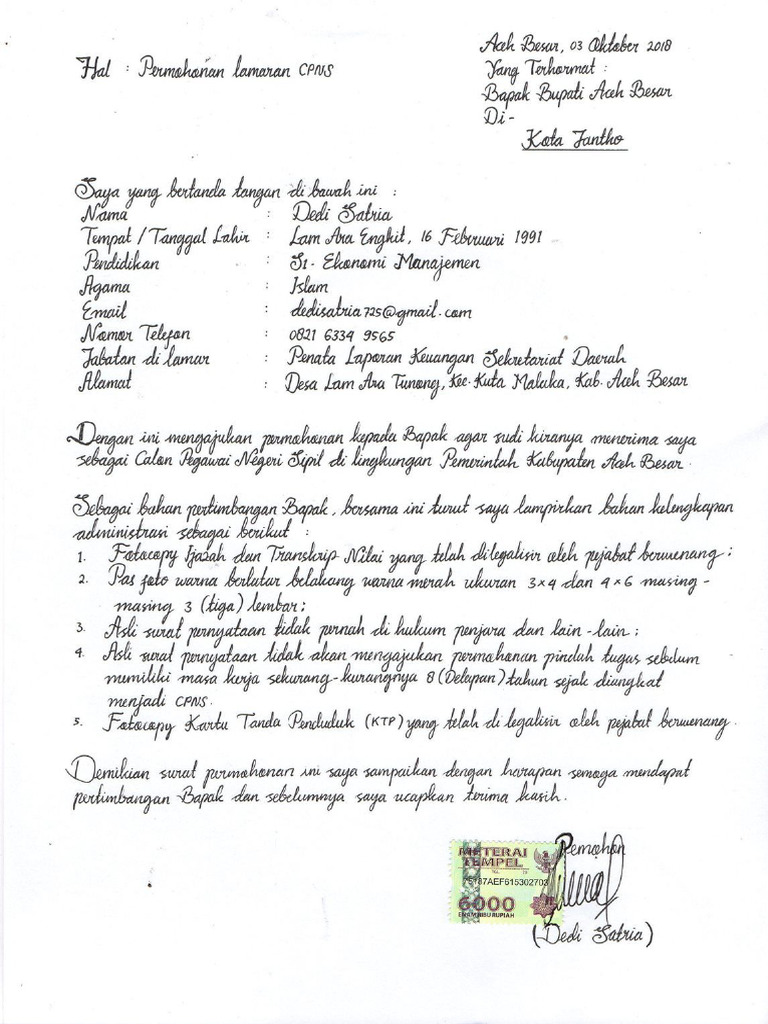 Aceh Besar, 03 Oktober 2018
Hal : Permohonan lamaran CPNS
Yang Terhormat :
Bapak Bupati Aceh Besar
Di-
Kota Jantho
Saya yang bertanda tangan di bawah ini :
Nama : Dedi Satria
Tempat / Tanggal Lahir : Lam Ara Engkit, 16 Februari 1991
Pendidikan : S1- Ekonomi Manajemen
Agama : Islam
Email : dedisatria725@gmail.com
Nomor Telefon : 0821 6334 9565
Jabatan di lamar : Penata Laporan Keuangan Sekretariat Daerah
Alamat : Desa Lam Ara Tunong, Kec. Kuta Malaka, Kab. Aceh Besar
Dengan ini mengajukan permohonan kepada Bapak agar sudi kiranya menerima saya
sebagai Calon Pegawai Negeri Sipil di lingkungan Pemerintah Kabupaten Aceh Besar.
Sebagai bahan pertimbangan Bapak, bersama ini turut saya lampirkan bahan kelengkapan
administrasi sebagai berikut :
1. Fotocopy Ijazah dan Transkrip Nilai yang telah dilegalisir oleh pejabat berwenang;
2. Pas foto warna berlatar belakang warna merah ukuran 3x4 dan 4x6 masing-
masing 3 (tiga) lembar;
3. Asli surat pernyataan tidak pernah di hukum penjara dan lain-lain;
4. Asli surat pernyataan tidak akan mengajukan permohonan pindah tugas sebelum
memiliki masa kerja sekurang-kurangnya 8 (Delapan) tahun sejak diangkat
menjadi CPNS.
5. Fotocopy Kartu Tanda Penduduk (KTP) yang telah di legalisir oleh pejabat berwenang.
Demikian surat permohonan ini saya sampaikan dengan harapan semoga mendapat
pertimbangan Bapak dan sebelumnya saya ucapkan terima kasih.
Pemohon
METERAI
TEMPEL
6000
ENAM RIBU RUPIAH
(Dedi Satria)